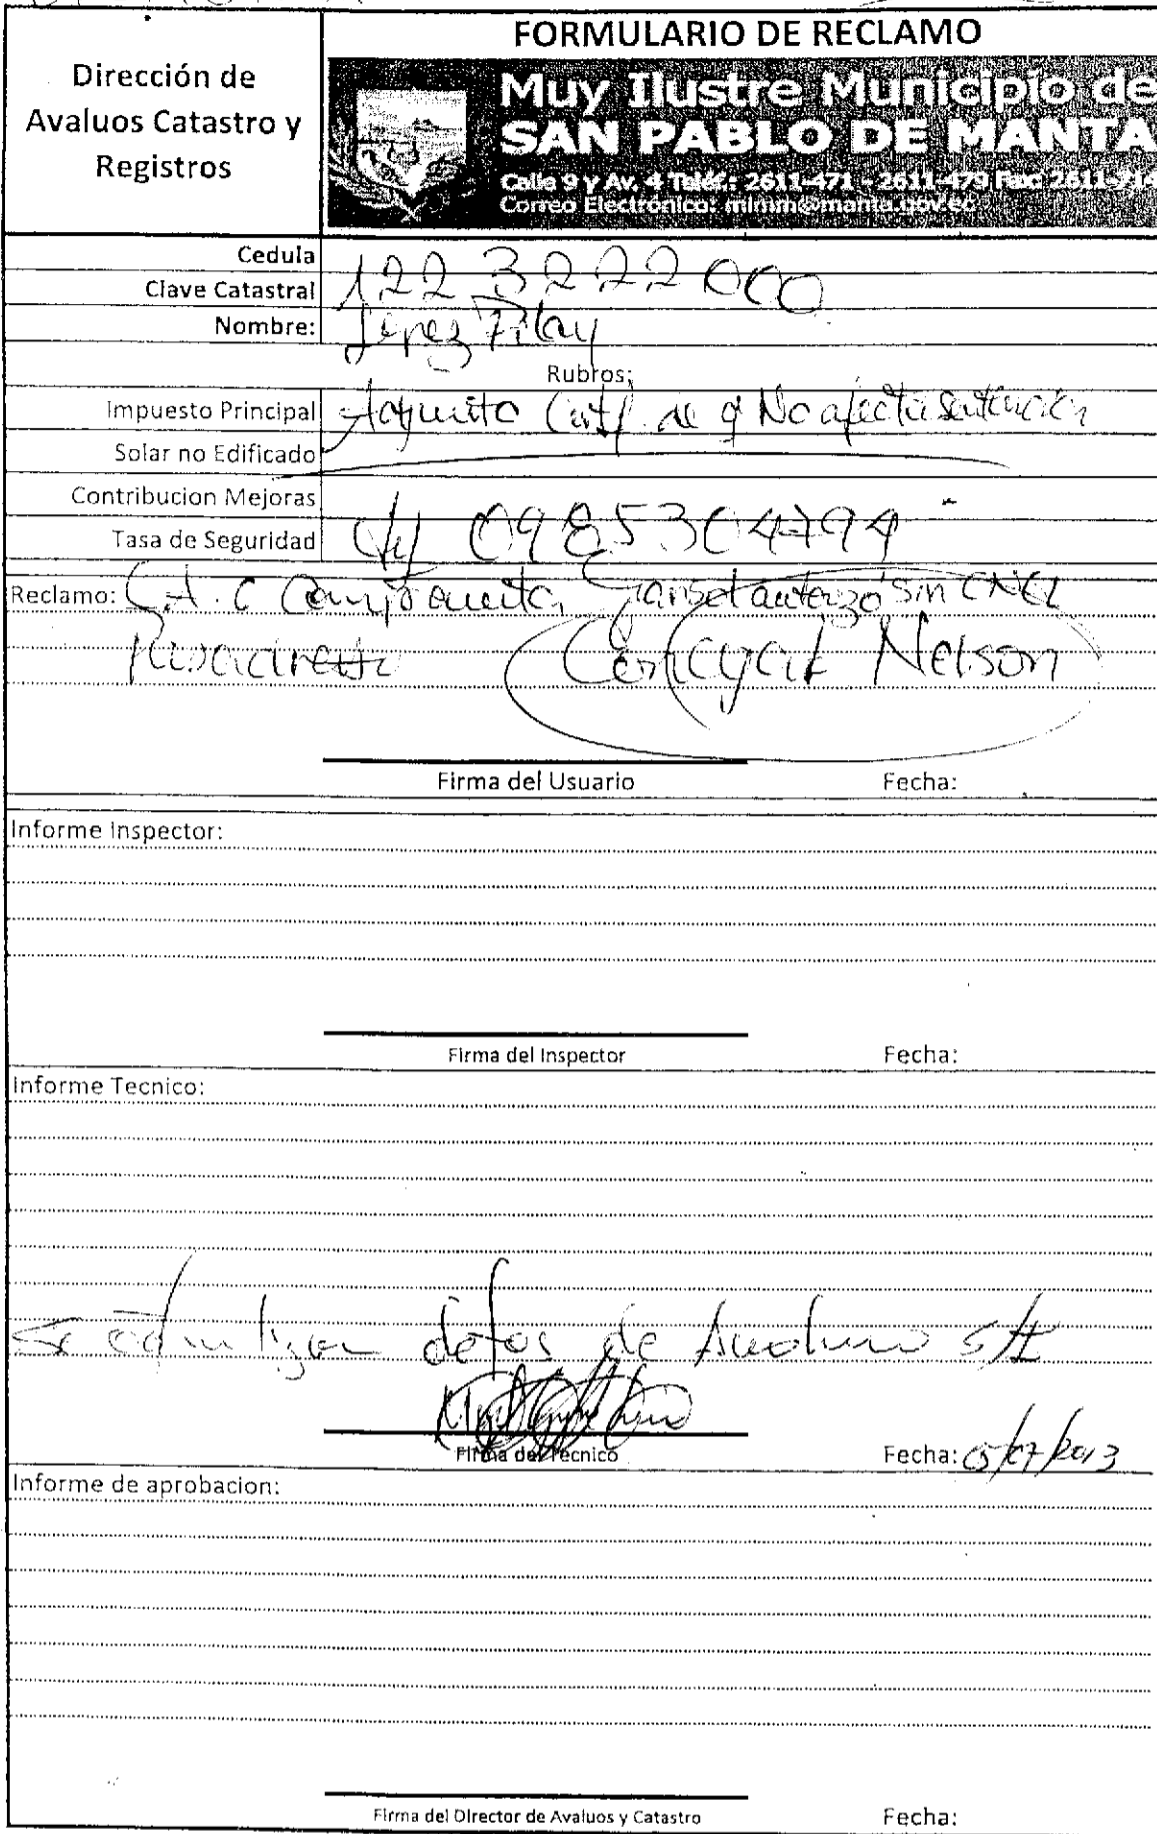 FORMULARIO DE RECLAMO
Dirección de
Avaluos Catastro y
Registros
Muy Ilustre Municipio de
SAN PABLO DE MANTA
Calle 9 Y AV. 4 Teléf.: 2611-471 - 2611-479 Fax: 2611-714
Correo Electrónico: mimm@manta.gov.ec
Cedula
Clave Catastral 1223222000
Nombre: Lopez Pilay
Rubros:
Impuesto Principal Adjunto Cert. de q No afecta
Solar no Edificado
Contribucion Mejoras
Tasa de Seguridad 0985304794
Reclamo: sin CNEL
Nelson
Firma del Usuario Fecha:
Informe Inspector:
Firma del Inspector Fecha:
Informe Tecnico:
Se datos de
Firma del Tecnico Fecha: 05/07/2013
Informe de aprobacion:
Firma del Director de Avaluos y Catastro Fecha: